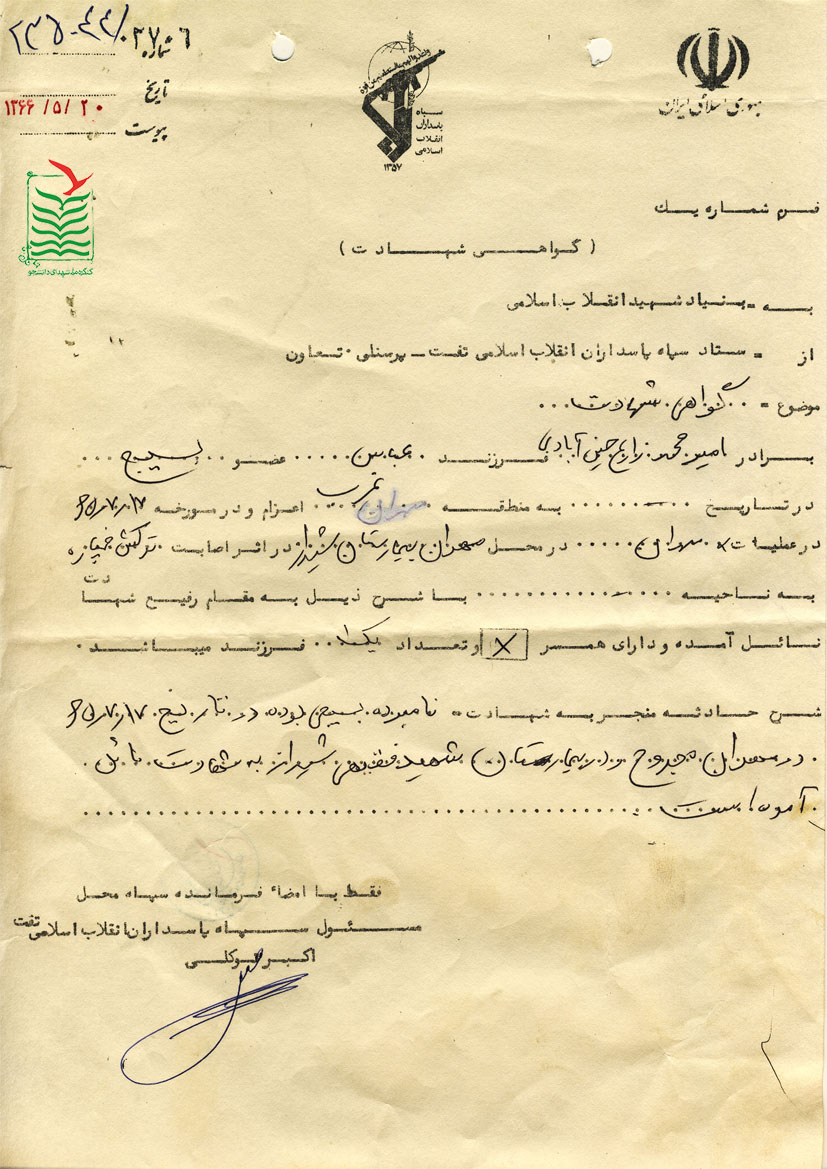 شماره ۲۷۰۶
تاریخ ۱۳۶۶/۵/۲۰
پیوست
سپاه
پاسداران
انقلاب
اسلامی
۱۳۵۷
جمهوری اسلامی ایران
کنگره ملی شهدای دانشجو
فرم شماره یک
( گواهی شهادت )
به = بنیاد شهید انقلاب اسلامی
از = ستاد سپاه پاسداران انقلاب اسلامی تفت - پرسنلی تعاون
موضوع = گواهی شهادت
برادر امیر محمد زارع فرزند عباس عضو بسیج
در تاریخ به منطقه مهران اعزام و در مورخه
در عملیات در محل مهران بیمارستان شیراز در اثر اصابت ترکش خمپاره
به ناحیه با شرح ذیل به مقام رفیع شهادت
نائل آمده و دارای همسر X و تعداد یک فرزند میباشد
شرح حادثه منجر به شهادت = نامبرده بسیجی بوده در تاریخ
در مهران مجروح و در بیمارستان شهید فقیهی شیراز به شهادت نائل
آمده است
فقط با امضاء فرمانده سپاه محل
مسئول سپاه پاسداران انقلاب اسلامی تفت
اکبر توکلی